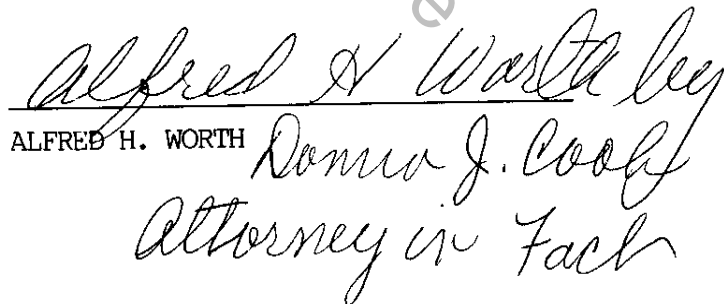 Alfred H Worth by
ALFRED H. WORTH
Donna J. Cook
Attorney in Fact